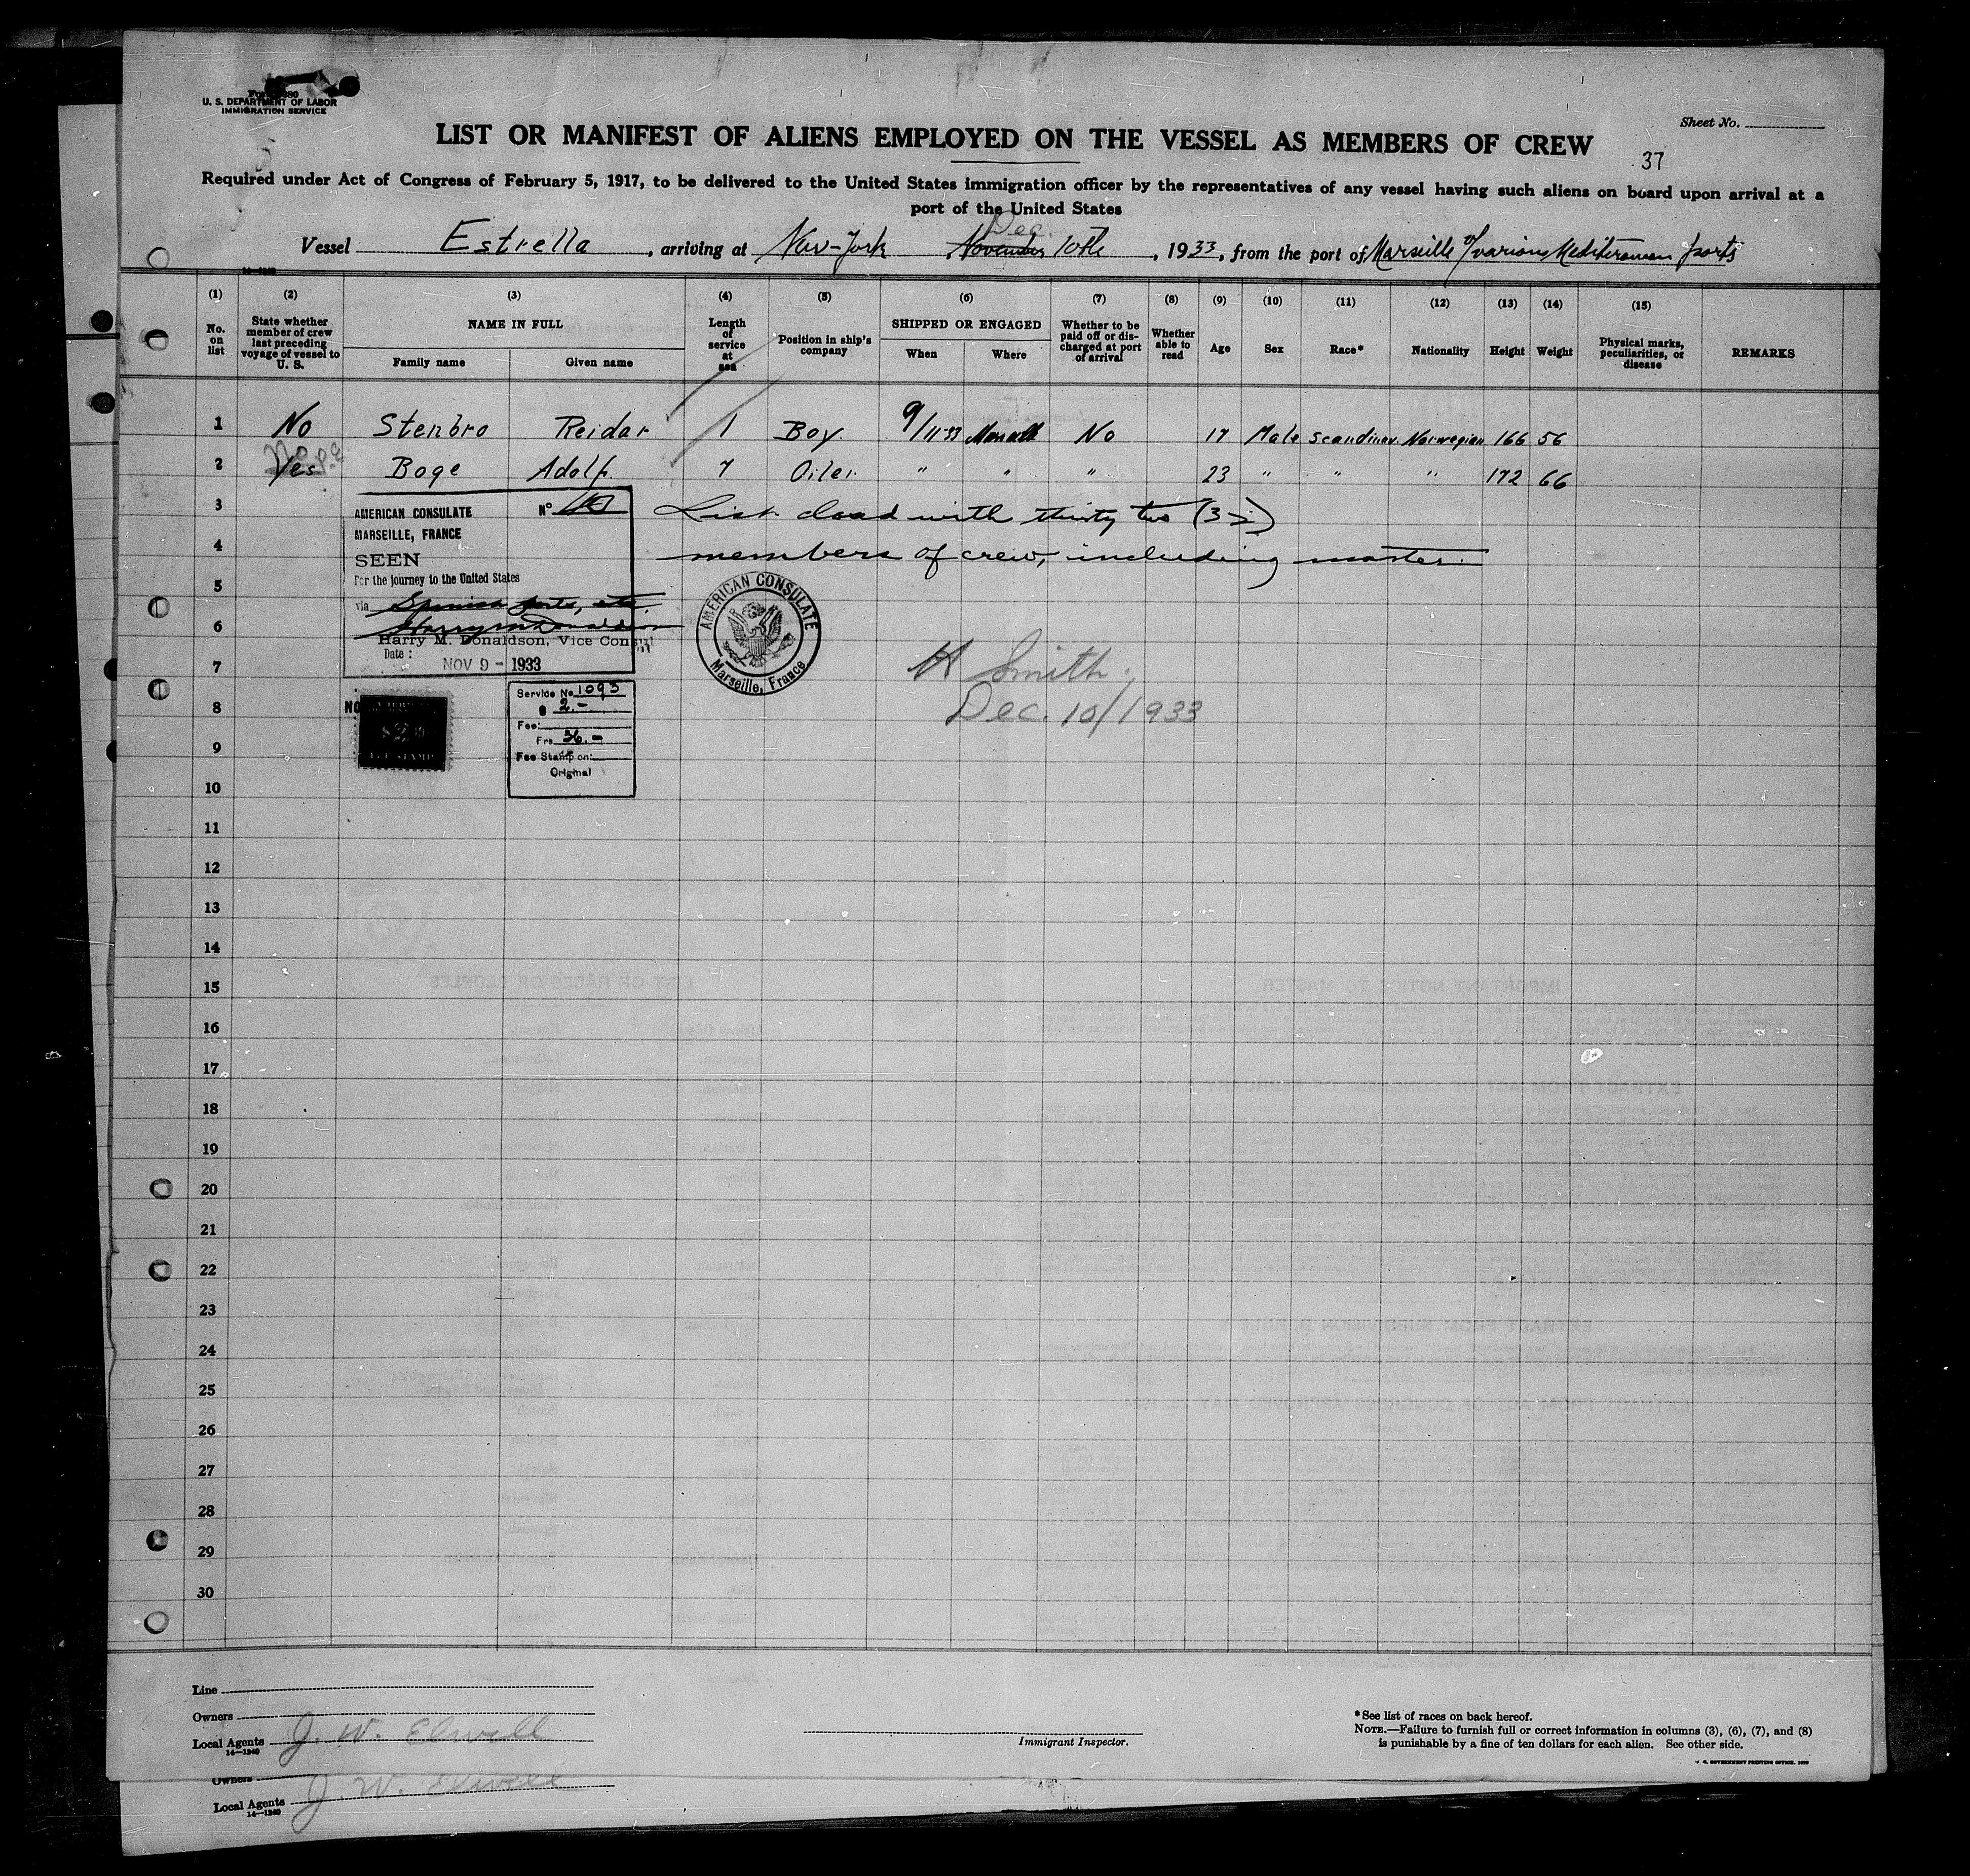 U. S. DEPARTMENT OF LABOR
IMMIGRATION SERVICE
Sheet No.
LIST OR MANIFEST OF ALIENS EMPLOYED ON THE VESSEL AS MEMBERS OF CREW
37
Required under Act of Congress of February 5, 1917, to be delivered to the United States immigration officer by the representatives of any vessel having such aliens on board upon arrival at a
port of the United States
Dec.
Vessel Estrella, arriving at New-York November 10th, 1933, from the port of Marseille of various Mediteranean ports
14-1240
(1) (2) (3) (4) (5) (6) (7) (8) (9) (10) (11) (12) (13) (14) (15)
No. on list
State whether member of crew last preceding voyage of vessel to U. S.
NAME IN FULL
Family name
Given name
Length of service at sea
Position in ship's company
SHIPPED OR ENGAGED
When
Where
Whether to be paid off or discharged at port of arrival
Whether able to read
Age
Sex
Race*
Nationality
Height
Weight
Physical marks, peculiarities, or disease
REMARKS
1 No Stenbro Reidar 1 Boy. 9/11 33 No 17 Male Scandinav. Norwegian 166 56
No
2 Yes Boge Adolf. 7 Oiler " " " 23 " " " 172 66
3 List closed with thirty two (32)
4 members of crew, including master.
AMERICAN CONSULATE Nº
MARSEILLE, FRANCE
SEEN
For the journey to the United States
via Spanish ports, etc.
Harry M. Donaldson
Harry M. Donaldson, Vice Consul
Date: NOV 9 - 1933
AMERICAN CONSULATE
Marseille, France
H Smith.
Dec. 10/1933
NO
$2
FEE STAMP
Service No. 1093
$ 2.-
Fee:
Frs. 36.-
Fee Stamp on:
Original
5
6
7
8
9
10
11
12
13
14
15
16
17
18
19
20
21
22
23
24
25
26
27
28
29
30
Line
Owners
Local Agents J. W. Elwell
14-1240
Immigrant Inspector.
*See list of races on back hereof.
NOTE.—Failure to furnish full or correct information in columns (3), (6), (7), and (8)
is punishable by a fine of ten dollars for each alien. See other side.
Owners
Local Agents J. W. Elwell
14-1240